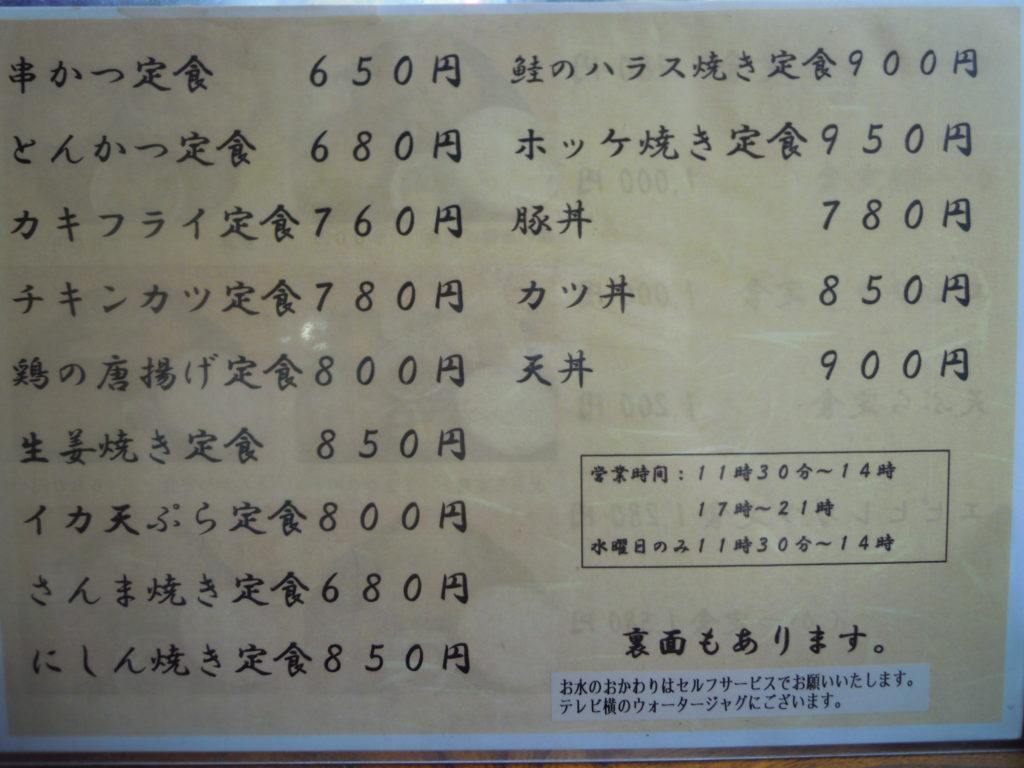 串かつ定食 650円
とんかつ定食 680円
カキフライ定食 760円
チキンカツ定食 780円
鶏の唐揚げ定食 800円
生姜焼き定食 850円
イカ天ぷら定食 800円
さんま焼き定食 680円
にしん焼き定食 850円
鮭のハラス焼き定食 900円
ホッケ焼き定食 950円
豚丼 780円
カツ丼 850円
天丼 900円
営業時間：11時30分～14時
17時～21時
水曜日のみ11時30分～14時
裏面もあります。
お水のおかわりはセルフサービスでお願いいたします。
テレビ横のウォータージャグにございます。